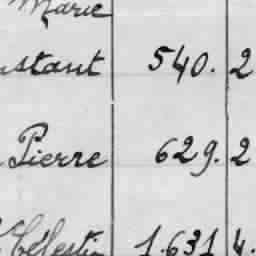 Marie
nstant 540. 2
Pierre 629. 2
Célestin 1.631 4.